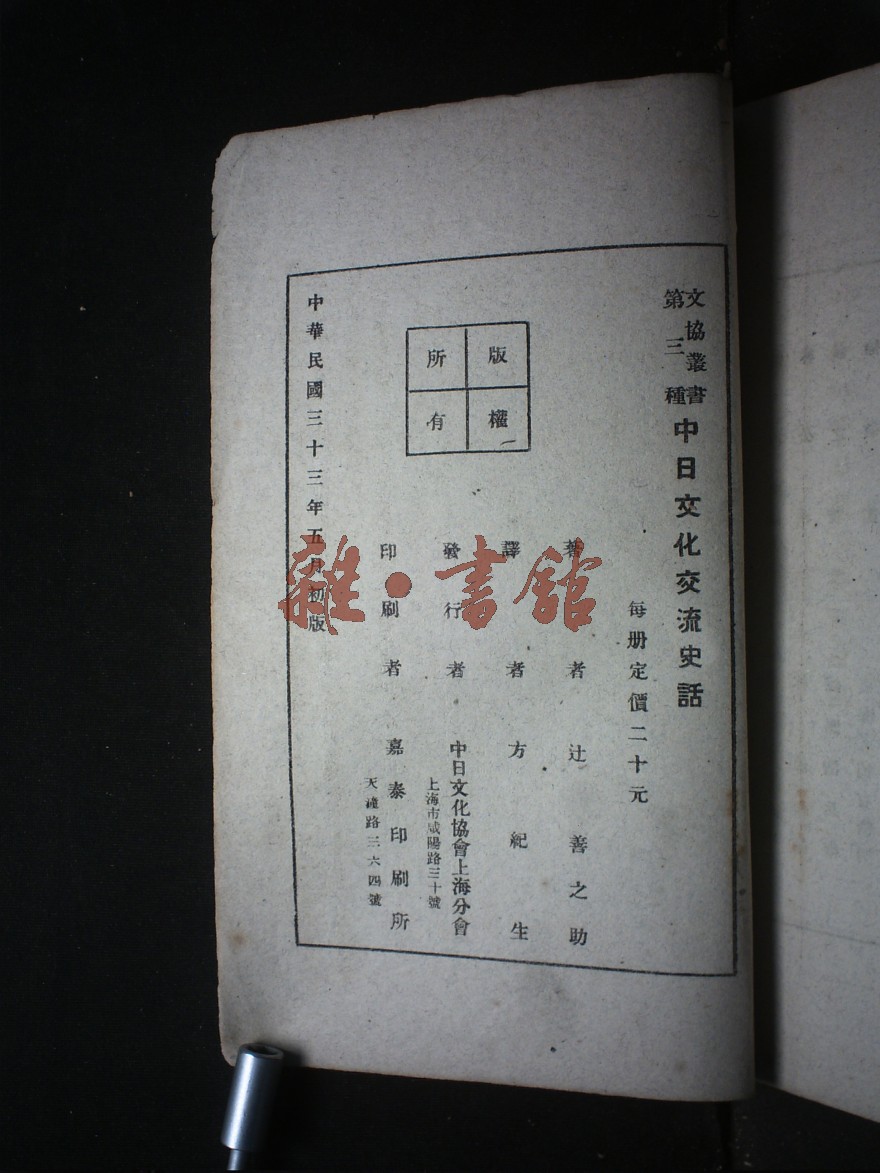 文協叢書
第三種
中日文化交流史話
每册定價二十元
著者 辻善之助
譯者 方紀生
發行者 中日文化協會上海分會
上海市咸陽路三十號
印刷者 嘉泰印刷所
天潼路三六四號
版權所有
中華民國三十三年五月初版
雜·書館